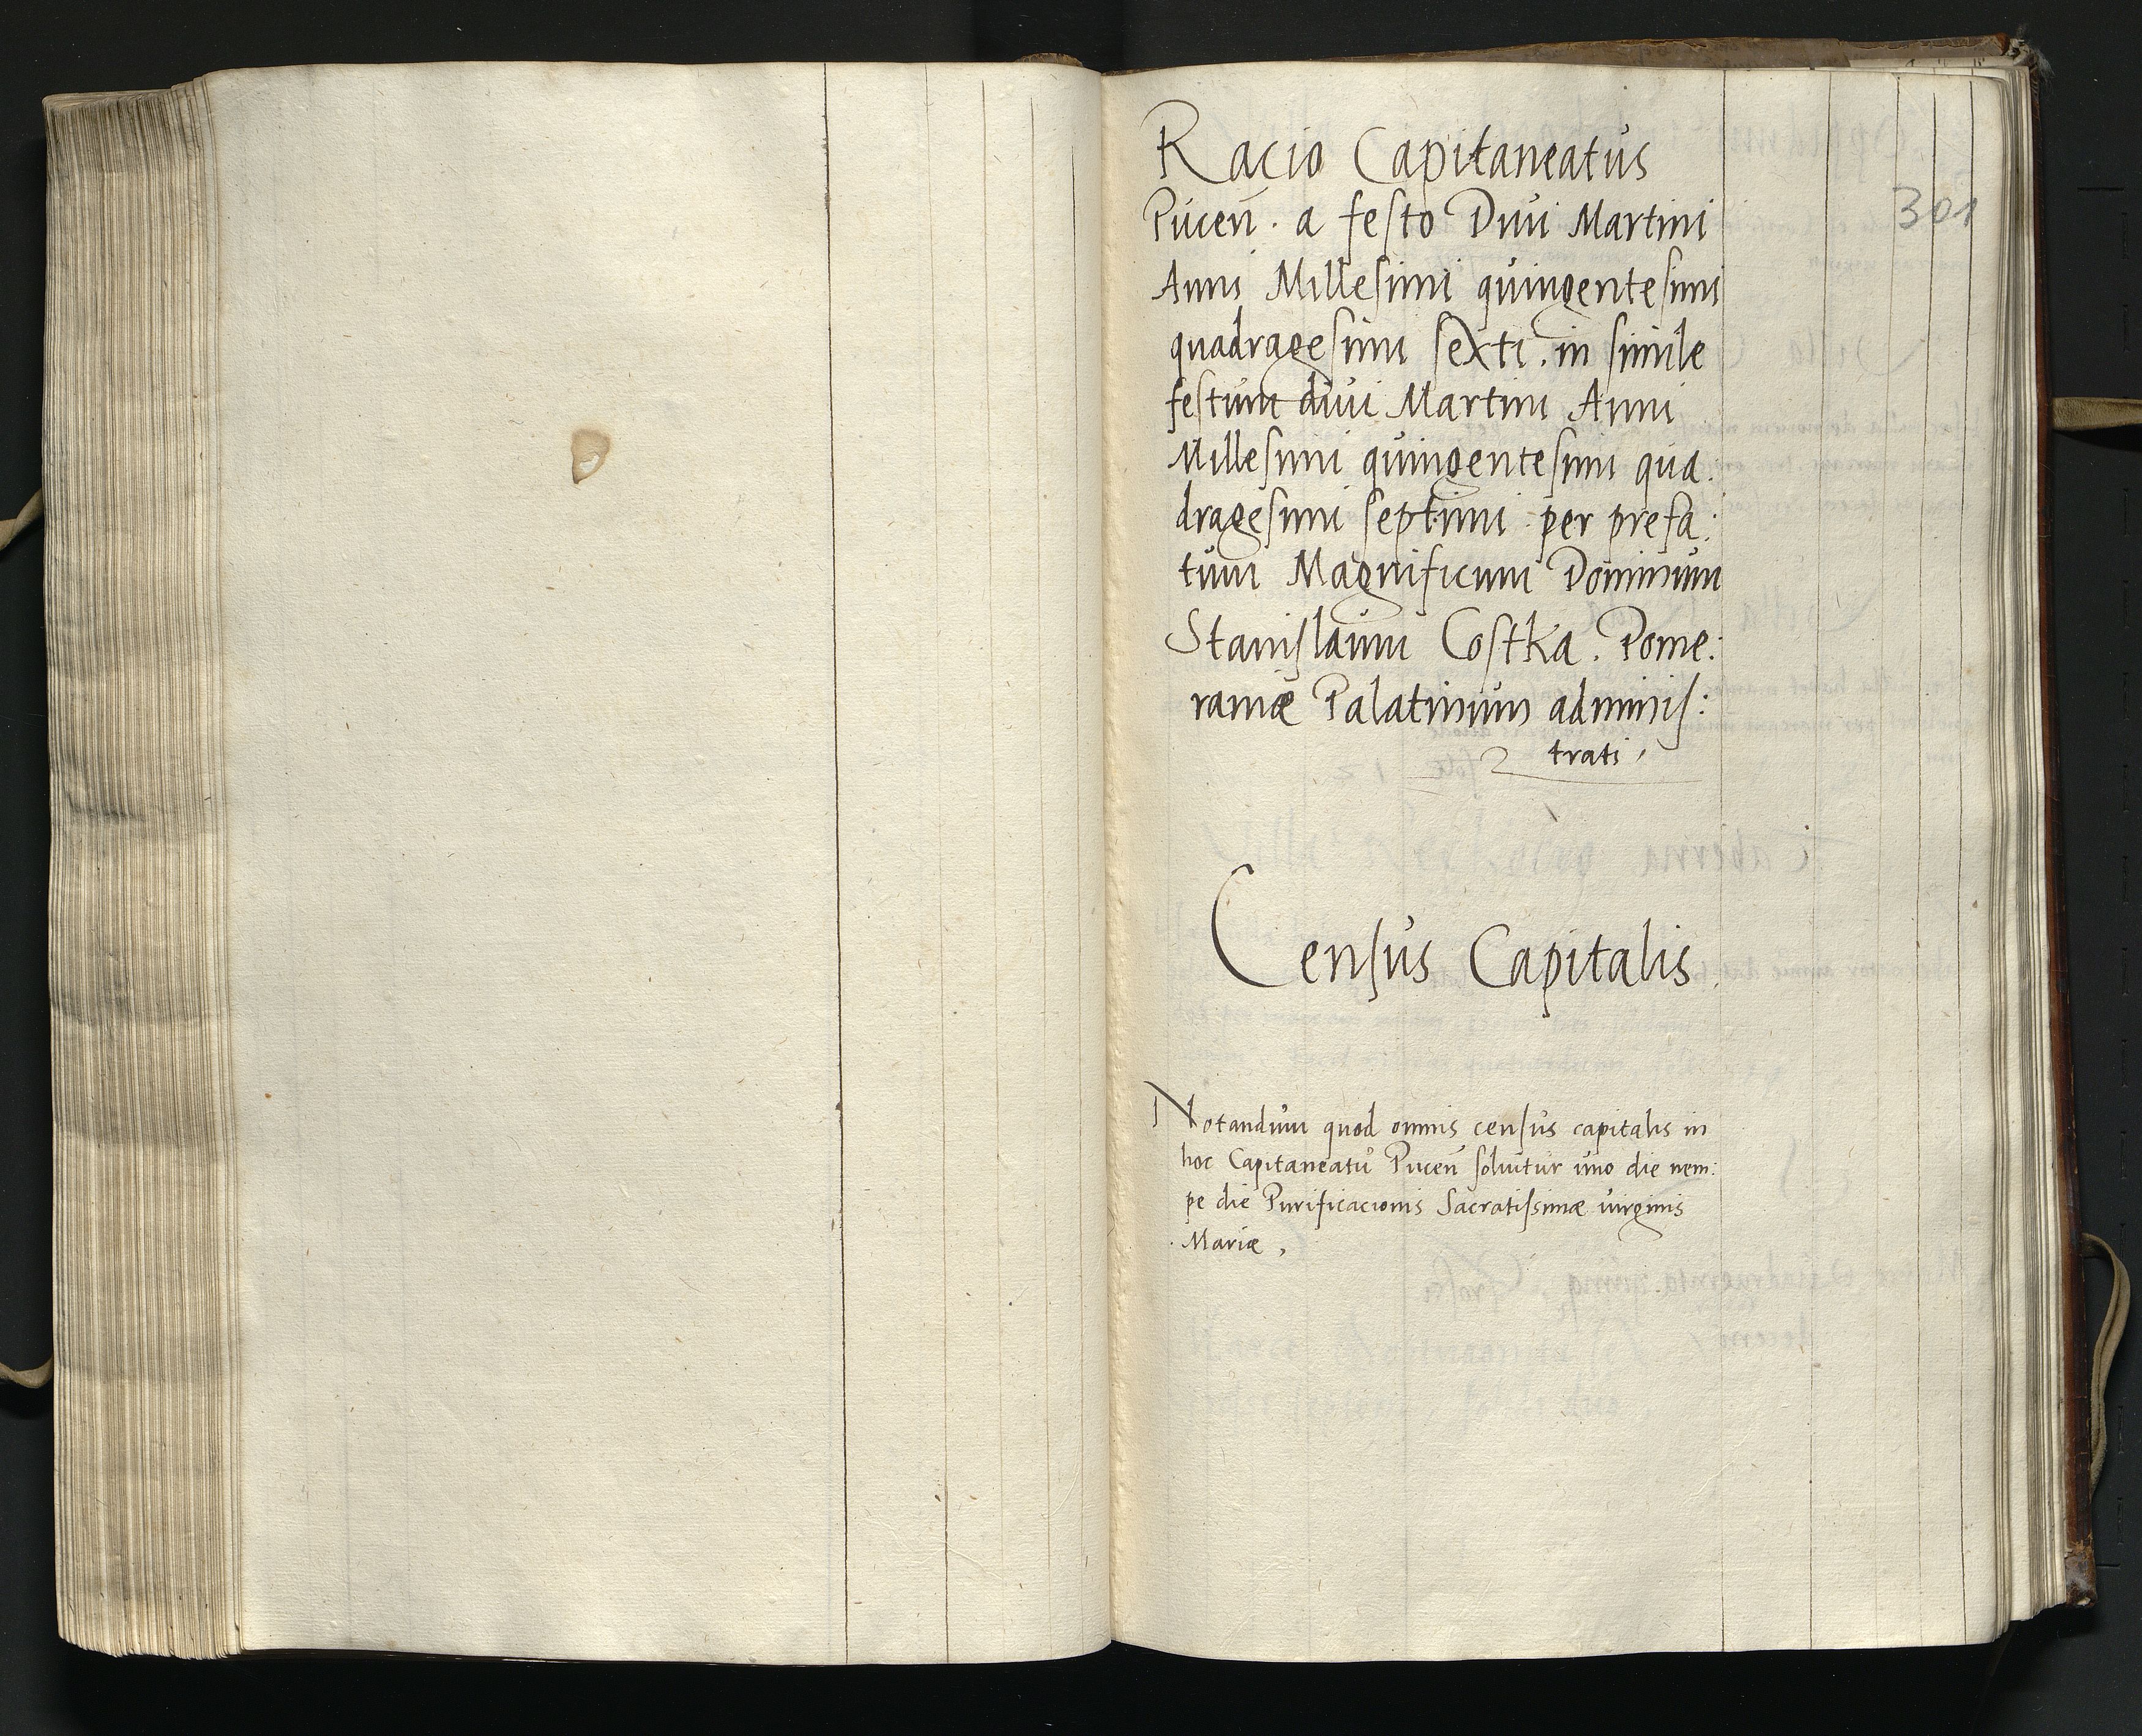 Racio Capitaneatus
301
Pucen̄. a festo Diui Martini
Anni Millesimi quingentesimi
quadragesimi sexti. in simile
festum diui Martini Anni
Millesimi quingentesimi qua:
dragesimi septimi per prefa:
tum Magnificum Dominum
Stanislaum Costka. Pome:
raniæ Palatinum adminis:
trati,
Census Capitalis.
Notandum quod omnis census capitalis in
hoc Capitaneatu Pucen̄ soluitur uno die nem:
pe die Purificacionis Sacratissimæ uirginis
Mariæ,